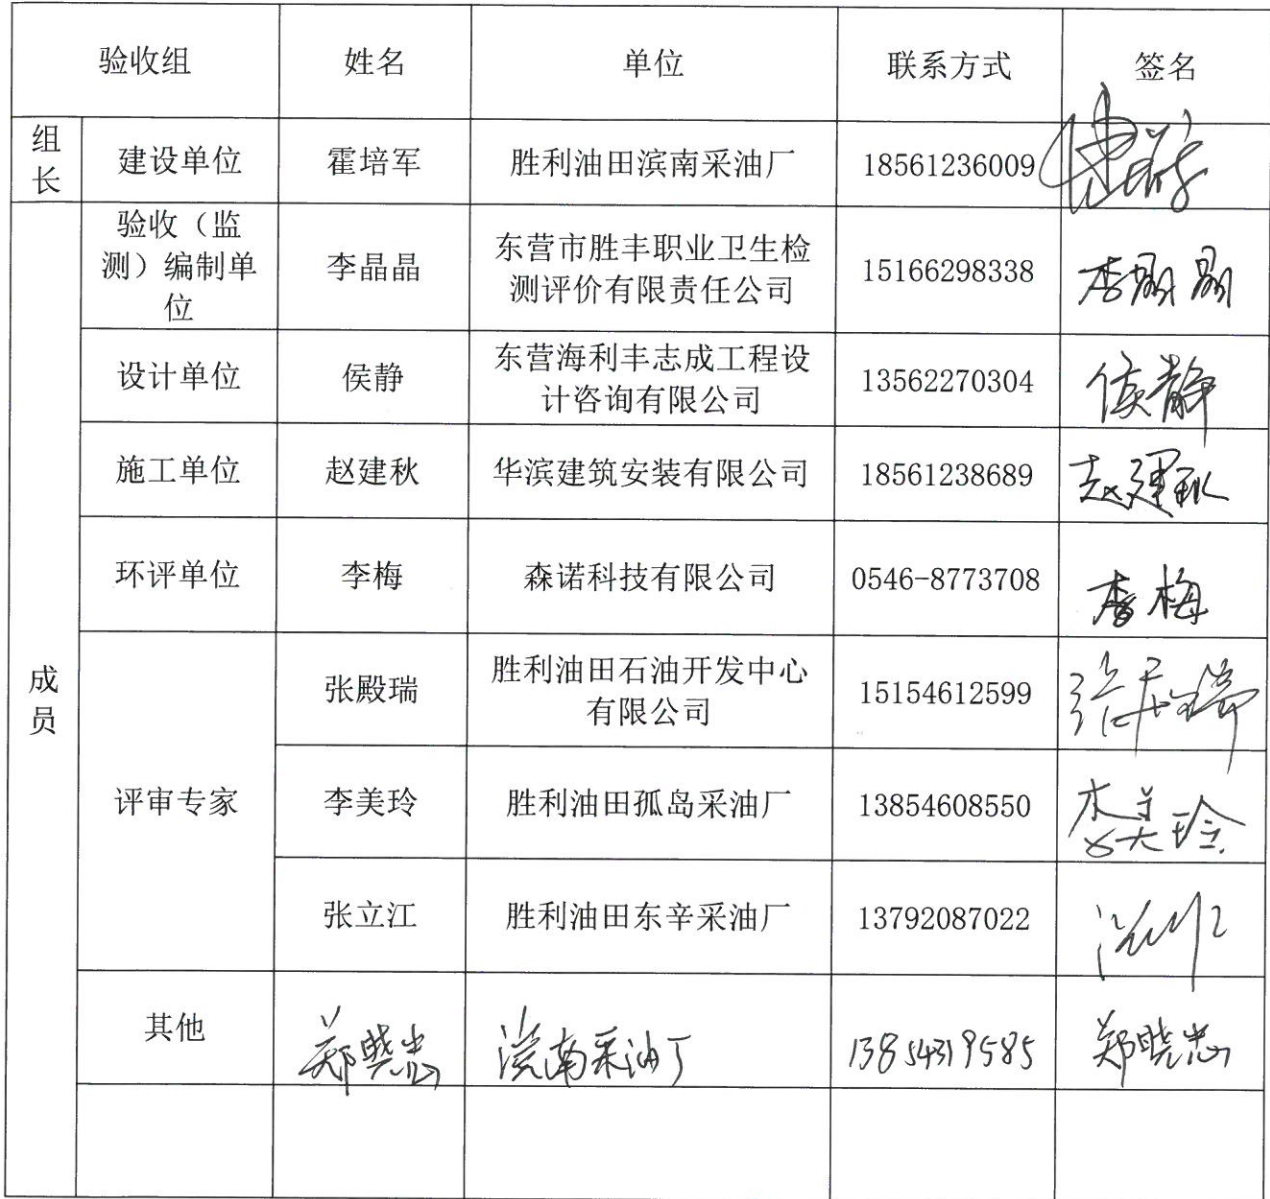 验收组 姓名 单位 联系方式 签名
组长 建设单位 霍培军 胜利油田滨南采油厂 18561236009
成员
验收（监
测）编制单
位
李晶晶
东营市胜丰职业卫生检
测评价有限责任公司
15166298338 李晶晶
设计单位 侯静
东营海利丰志成工程设
计咨询有限公司
13562270304 侯静
施工单位 赵建秋 华滨建筑安装有限公司 18561238689 赵建秋
环评单位 李梅 森诺科技有限公司 0546-8773708 李梅
评审专家
张殿瑞
胜利油田石油开发中心
有限公司
15154612599 张殿瑞
李美玲 胜利油田孤岛采油厂 13854608550 李美玲
张立江 胜利油田东辛采油厂 13792087022
其他 郑晓忠 滨南采油厂 13854319585 郑晓忠